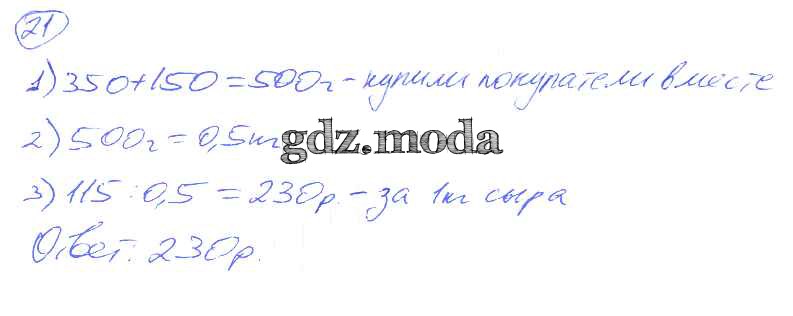 21
1) 350+150=500г - купили покупатели вместе
2) 500г = 0,5кг
gdz.moda
3) 115 : 0,5 = 230р. - за 1кг сыра
Ответ: 230р.